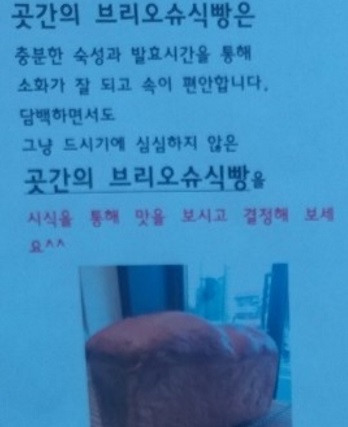 곳간의 브리오슈식빵은
충분한 숙성과 발효시간을 통해
소화가 잘 되고 속이 편안합니다.
담백하면서도
그냥 드시기에 심심하지 않은
곳간의 브리오슈식빵을
시식을 통해 맛을 보시고 결정해 보세
요^^